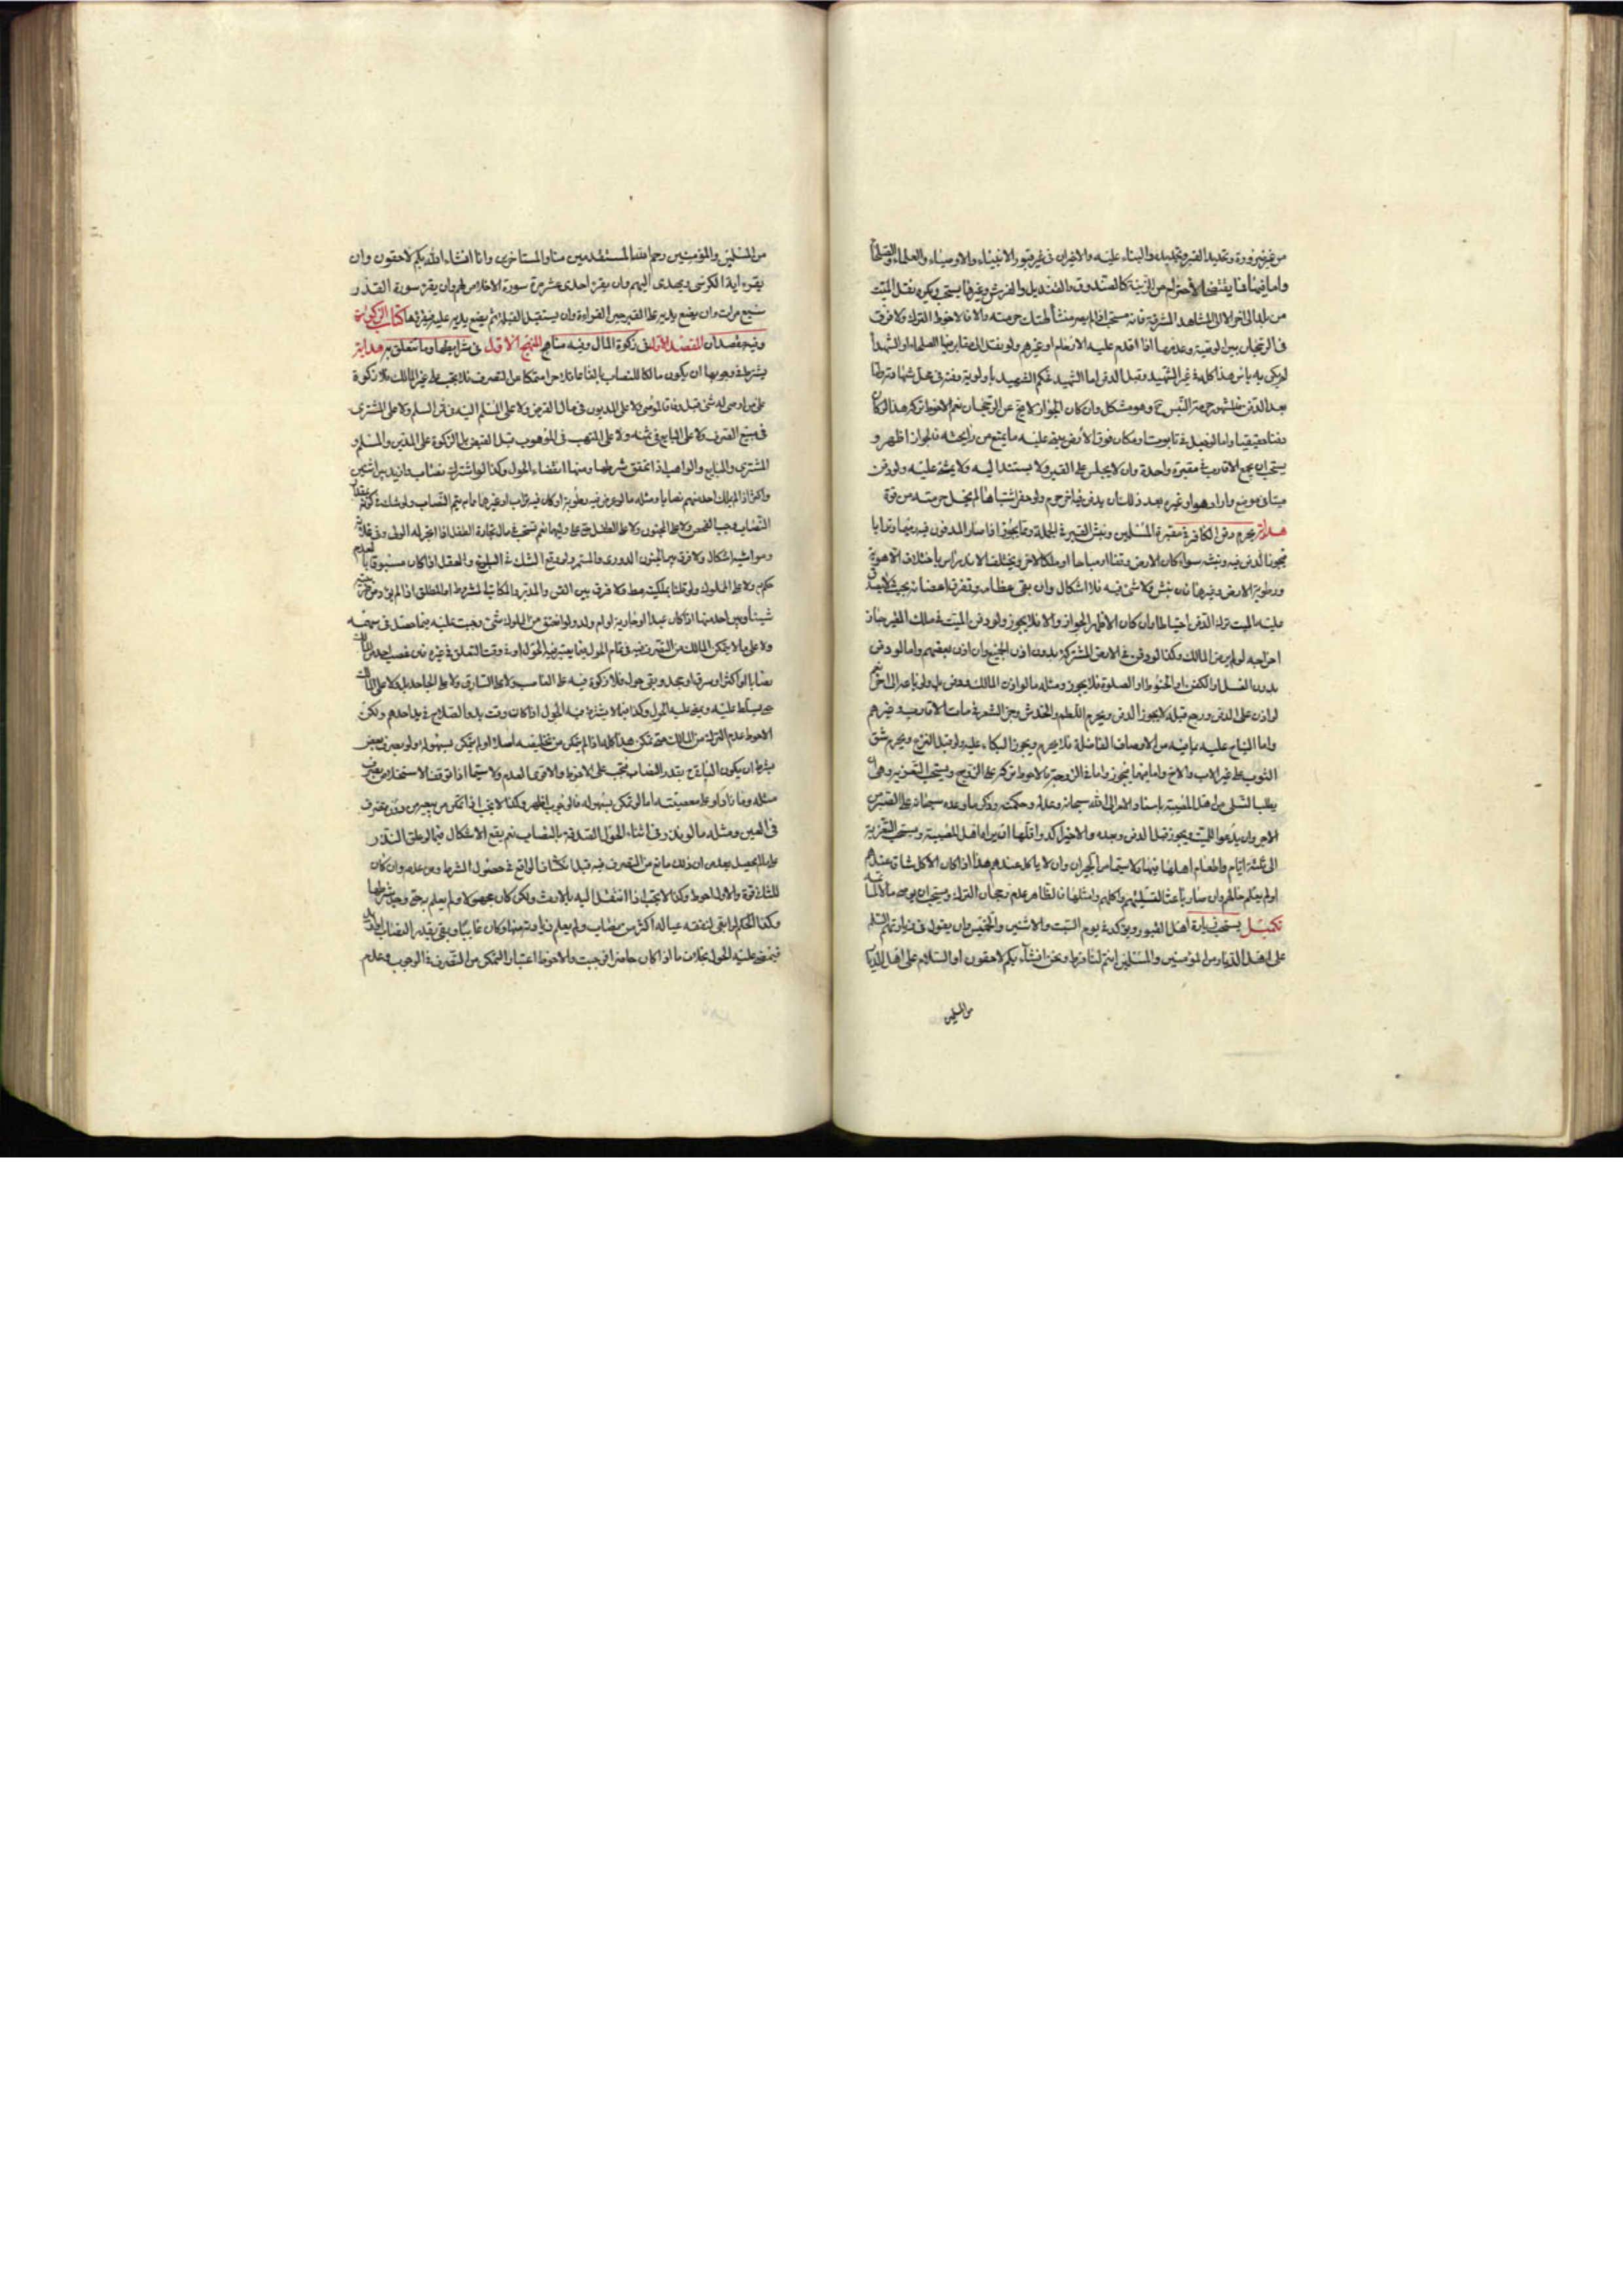 من غير ضرورة وتجديد القبر وتجديده والبناء عليه والاقران فى غير قبور الانبياء والاوصياء والعلماء والصلحاء
واما فيها فما يقتضى الاحترام من الزينة كالصندوق والقنديل والفرش وغيرها يستحب ويكره نقل الميت
من بلد الى اخر الا الى المشاهد المشرفة فانه مستحب اذا لم يصر منشأ لهتك حرمته والا فالاحوط الترك ولا فرق
فى الرجحان بين الوصية وعدمها اذا اقدم عليه الارحام او غيرهم ولو نقل الى مقابر فيها الصلحاء او الشهداء
لم يكن به بأس هذا كله فى غير الشهيد وقبل الدفن اما الشهيد فحكم الشهيد باولوية دفنه فى محل شهادته واما
بعد الدفن فالمشهور حرمة النبش ح وهو مشكل وان كان الجواز لا يخ عن الرجحان نعم الاحوط تركه هذا لو كان
دفنا حقيقيا واما لو جعل فى تابوت او مكان فوق الارض وبنى عليه ما يمنع من رائحته فالجواز اظهر و
يستحب ان يجمع الاقارب فى مقبرة واحدة وان لا يجلس على القبر ولا يستند اليه ولا يمشى عليه ولو دفن
ميتا فى موضع واراد هو او غيره بعد ذلك ان يدفن فيه اخر حرم ولو حفر اشتباها لم يخل حرمته من قوة
هداية يحرم دفن الكافر فى مقبرة المسلمين ونبش القبر فى الجملة وانما يجوز اذا صار المدفون فيه رميما وترابا
فيجوز الدفن فيه ونبشه سواء كان الارض وقفا او مباحا او ملكا لاخر ويختلف الاندراس باختلاف الاهوية
ورطوبة الارض وغيرها فان نبش ولا شئ فيه فلا اشكال وان بقى عظامه وتفرق اعضائه بحيث لا يصدق
عليه الميت ترك الدفن احتياطا وان كان الاظهر الجواز والا فلا يجوز ولو دفن الميت فى ملك الغير جاز
اخراجه لو لم يرض المالك وكذا لو دفن فى الارض المشتركة بدون اذن الجميع وان اذن بعضهم واما لو دفن
بدون الغسل او الكفن او الحنوط او الصلوة فلا يجوز ومثله ما لو اذن المالك فدفن بل ولو باعه الى اخر نعم
لو اذن على الدفن ورجع قبله لا يجوز الدفن ويحرم اللطم والخدش وجز الشعر فى مات الاقارب وغيرهم
واما النياح عليه بما فيه من الاوصاف الفاضلة فلا يحرم ويجوز البكاء عليه ولو قبل النزع ويحرم شق
الثوب على غير الاب والاخ واما فيهما فيجوز واما فى الزوجة فالاحوط تركه على الزوج ويستحب التعزية وهى ان
يطلب التسلى من اهل المصيبة باسناد الامر الى الله سبحانه وعدله وحكمته وذكر ما وعده سبحانه على الصبر من
الاجر وان يدعو للميت ويجوز قبل الدفن وبعده والاخير اكد واقلها ان يراه اهل المصيبة ويستحب التعزية
الى ثلثة ايام واطعام اهلها فيها لا سيما من الجيران وان لا ياكل عندهم هذا اذا كان الاكل شاق عندهم
او لم يعلم حالهم وان صار باعث لتسليتهم باكلهم وامثلها فالظاهر عدم رجحان الترك ويستحب ان يوصى مالا لما تمه
تكميل يستحب زيارة اهل القبور ويؤكد فى يوم السبت والاثنين والخميس وان يقول فى زيارتهم السلم
على اهل الديار من المؤمنين والمسلمين انتم لنا فرط ونحن انشاء بكم لاحقون او السلام على اهل الديار
من المسلمين
من المسلمين والمؤمنين رحم الله المستقدمين منا والمستاخرين وانا انشاء الله بكم لاحقون وان
يقرء اية الكرسى ويهدى اليهم وان يقرء احدى عشر مرة سورة الاخلاص لهم وان يقرء سورة القدر
سبع مرات وان يضع يده على القبر حين القراءة وان يستقبل القبلة ثم يضع يده عليه فيقرئها كتاب الزكوة
وفيه مقصدان المقصد الاول فى زكوة المال وفيه مناهج المنهج الاول فى شرايطها وما تتعلق به هداية
يشترط فى وجوبها ان يكون مالكا للنصاب بالغا عاقلا حرا متمكنا من التصرف فلا يجب على غير المالك فلا زكوة
على من اوصى له شئ قبل وفاة الموصى ولا على المديون فى مال القرض ولا على المسلم اليه فى السلم ولا على المشترى
فى مبيع الصرف ولا على البايع فى ثمنه ولا على المتهب فى الموهوب قبل القبض بل الزكوة على المدين والمسلم و
المشترى والبايع والواهب اذا تحقق شرطها ومنها انقضاء الحول وكذا لو اشترك نصاب وازيد بين اثنين
واكثر اذ لم يملك احد منهم نصابا ومثله ما لو عرض فيه رطوبة او كان فيه تراب او غيرها ما لم يتم النصاب ولو شك فى كونه بمقدار
النصاب وجب الفحص ولا على المجنون ولا على الطفل فى على وليهما نعم تستحب فى مال تجارة الطفل اذا اتجر له الولى وفى غلاته
ومواشيه اشكال ولا فرق بين الجنون الدورى والمستمر ولو وقع الشك فى البلوغ والعقل اذا كان مسبوقا بالعدم
حكم به ولا على المملوك ولو قلنا بملكيته مط ولا فرق بين القن والمدبر والمكاتب المشروط اما المطلق اذا لم يؤد من
شيئا وبين احد منها اذا كان عبدا او جارية او ام ولد ولو اعتق من المملوك شئ وجبت عليه فيما حصل فى سهمه
ولا على ما لا يتمكن المالك من التصرف فيه فى تمام الحول فيما يعتبر فيه الحول او فى وقت التعلق فى غيره فان غصب احد من المالك
نصابا او اكثر او سرق او جحد وبقى حول فلا زكوة فيه على الغاصب ولا على السارق ولا على الجاحد بل ولا على المالك
حتى يتسلط عليه ويمضى عليه الحول وكذا فيما لا يشترط فيه الحول اذا كان وقت بدو الصلاح فى يد احدهم ولكن
الاحوط عدم الترك من المالك متى تمكن هذا كله اذا لم يتمكن من تخليصه اصلا او لم يتمكن بسهولة ولو بصرف بعض
بشرط ان يكون الباقى بقدر النصاب فتجب على الاحوط والاقوى العدم ولا سيما اذا توقف الاستخلاص بصرف
مثله وما زاد او على معصيته اما لو تمكن بسهولة فالوجوب اظهر وكذا لا يجب اذا تمكن من بيعه من دون تصرف
فى العين ومثله ما لو نذر فى اثناء الحول الصدقة بالنصاب نعم يقع الاشكال فيما لو علق النذر
على ما لم يحصل بعد من ان ذلك مانع من التصرف فيه قبل انكشاف الواقع فى حصول الشرط ومن عدمه وان كان
للثانى قوة والاول احوط وكذا لا تجب اذا انتقل اليه بالارث ولكن كان مجهولا ولم يعلم به حتى وجد شرطها
وكذا الحكم لو ابقى لنفقة عياله اكثر من نصاب ولم يعلم زيادته منها وكان غائبا وبقى بقدر النصاب
فيمضى عليه الحول بخلاف ما لو كان حاضرا فوجبت والاحوط اعتبار التمكن من التصرف فى الوجوب وعدم